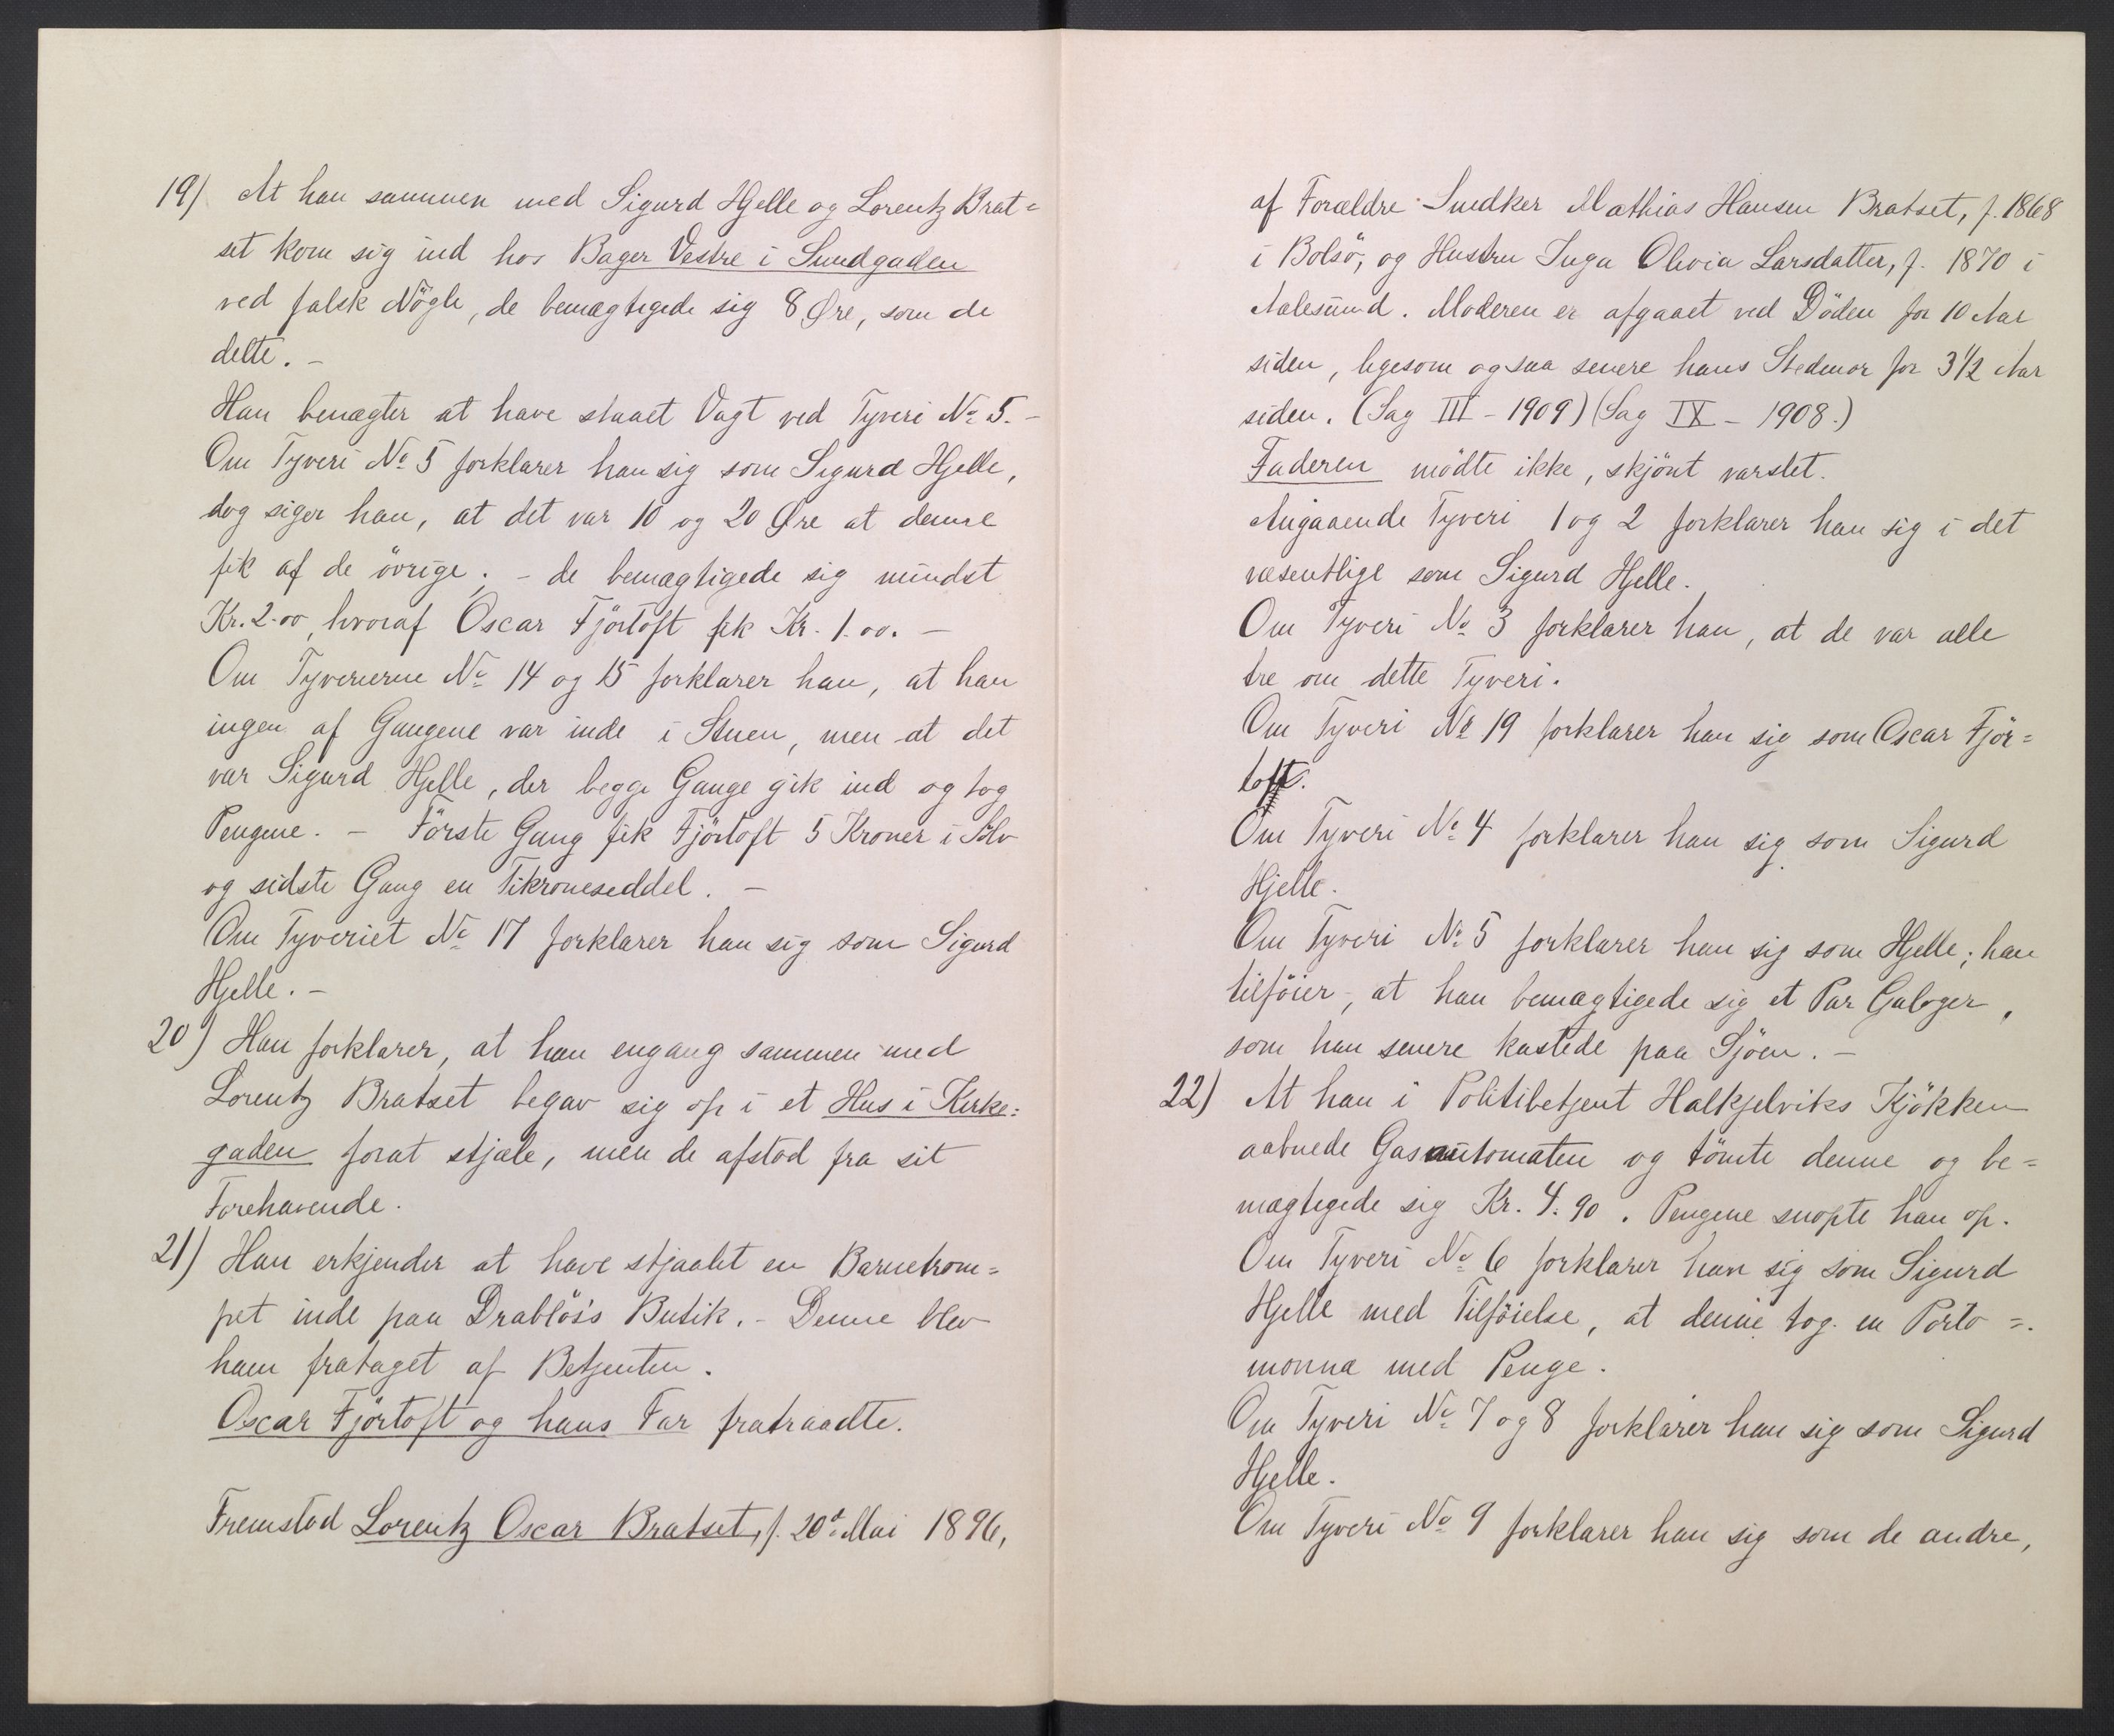 19) At han sammen med Sigurd Hjelle og Lorentz Brat=
set kom sig ind hos Bager Vestre i Sundgaden
ved falsk Nögle, de bemægtigede sig 8 Øre, som de
delte. –
Han benægter at have staaet Vagt ved Tyveri No 5. –
Om Tyveri No 5 forklarer han sig som Sigurd Hjelle,
dog siger han, at det var 10 og 20 Øre at denne
fik af de övrige; – de bemægtigede sig mindst
Kr. 2.00, hvoraf Oscar Fjörtoft fik Kr. 1.00. –
Om Tyverierne No 14 og 15 forklarer han, at han
ingen af Gangene var inde i Stuen, men at det
var Sigurd Hjelle, der begge Gange gik ind og tog
Pengene. – Förste Gang fik Fjörtoft 5 Kroner i Sölv
og sidste Gang en Tikroneseddel. –
Om Tyveriet No 17 forklarer han sig som Sigurd
Hjelle. –
20) Han forklarer, at han engang sammen med
Lorentz Bratset begav sig op i et Hus i Kirke=
gaden forat stjæle, men de afstod fra sit
Forehavende.
21) Han erkjender at have stjaalet en Barnetrom=
pet inde paa Drablös's Butik. – Denne blev
ham frataget af Betjenten.
Oscar Fjörtoft og hans Far fratraadte.
Fremstod Lorentz Oscar Bratset, f. 20de Mai 1896,
af Forældre Snedker Mathias Hansen Bratset, f. 1868
i Bolsö, og Hustru Inga Olivia Larsdatter, f. 1870 i
Aalesund. Moderen er afgaaet ved Döden for 10 Aar
siden, ligesom ogsaa senere hans Stedmor for 3 1/2 Aar
siden. (Sag III – 1909) (Sag IX – 1908.)
Faderen mödte ikke, skjönt varslet.
Angaaende Tyveri 1 og 2 forklarer han sig i det
væsentlige som Sigurd Hjelle.
Om Tyveri No 3 forklarer han, at de var alle
tre om dette Tyveri.
Om Tyveri No 19 forklarer han sig som Oscar Fjör=
toft.
Om Tyveri No 4 forklarer han sig som Sigurd
Hjelle.
Om Tyveri No 5 forklarer han sig som Hjelle; han
tilföier, at han bemægtigede sig et Par Galoger,
som han senere kastede paa Sjöen. –
22) At han i Politibetjent Halkjelviks Kjökken
aabnede Gasautomaten og tömte denne og be=
mægtigede sig Kr. 4.90. Pengene snopte han op.
Om Tyveri No 6 forklarer han sig som Sigurd
Hjelle med Tilföielse, at denne tog en Porto =
monna med Penge.
Om Tyveri No 7 og 8 forklarer han sig som Sigurd
Hjelle.
Om Tyveri No 9 forklarer han sig som de andre,